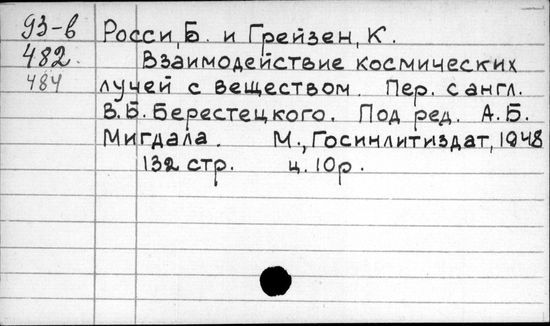 93-в
482.
484
Росси, Б. и Грейзен, К.
Взаимодействие космических
лучей с веществом. Пер. с англ.
В.Б. Берестецкого. Под ред. А.Б.
Мигдала. М., Госинлитиздат, 1948
132 стр. ц. 10р.